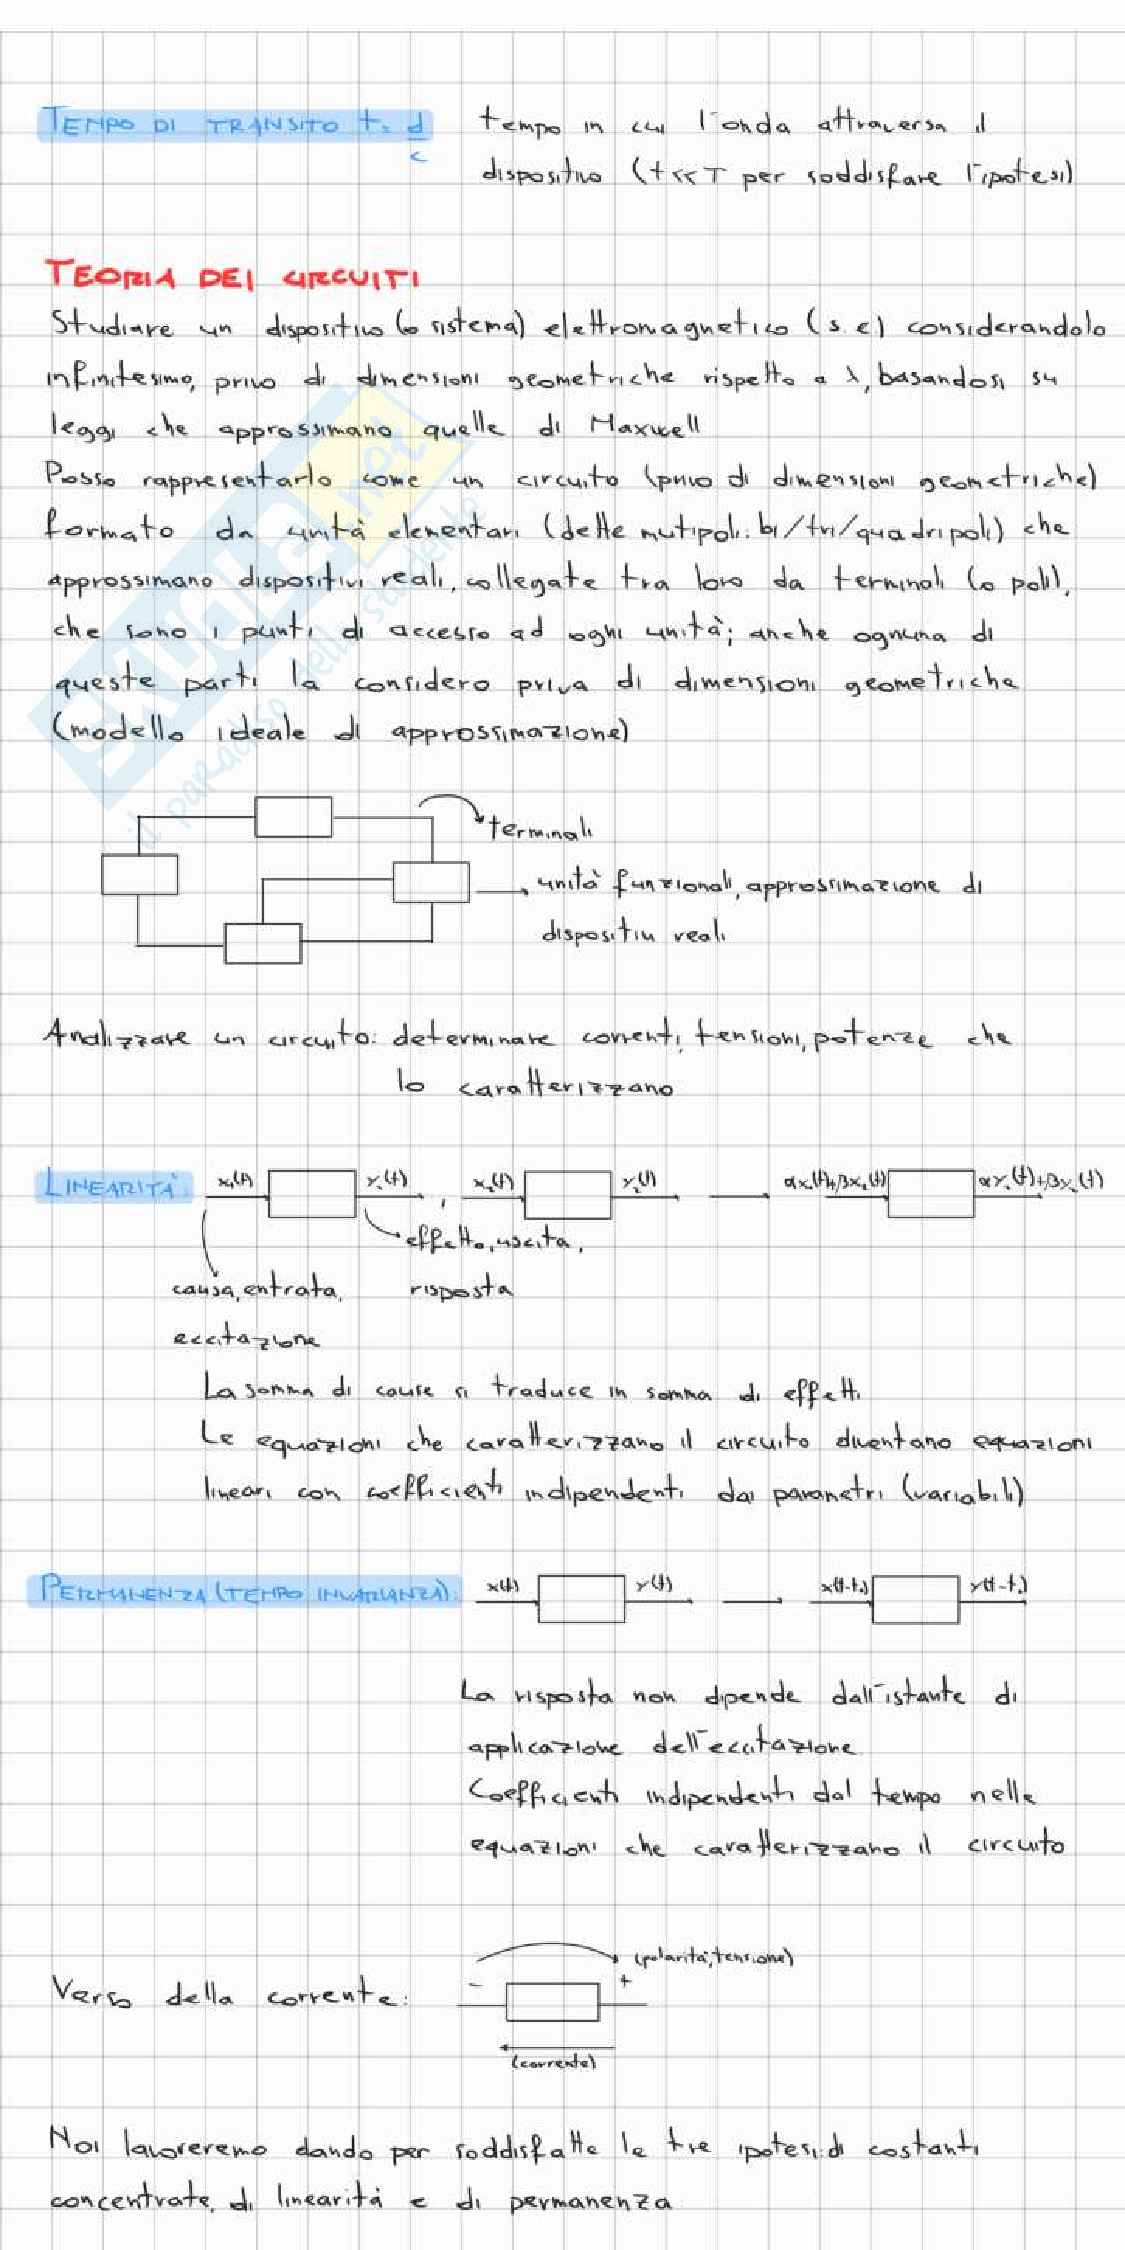 TEMPO DI TRANSITO t= d/c tempo in cui l'onda attraversa il
dispositivo (t<<T per soddisfare l'ipotesi)
TEORIA DEI CIRCUITI
Studiare un dispositivo (o sistema) elettromagnetico (s.e.) considerandolo
infinitesimo, privo di dimensioni geometriche rispetto a λ, basandosi su
leggi che approssimano quelle di Maxwell
Posso rappresentarlo come un circuito (privo di dimensioni geometriche)
formato da unità elementari (dette mutipoli: bi/tri/quadripoli) che
approssimano dispositivi reali, collegate tra loro da terminali (o poli),
che sono i punti di accesso ad ogni unità; anche ognuna di
queste parti la considero priva di dimensioni geometriche
(modello ideale di approssimazione)
SKUOLA.net
il paradiso dello studente
terminali
unità funzionali, approssimazione di
dispositivi reali
Analizzare un circuito: determinare correnti, tensioni, potenze che
lo caratterizzano
LINEARITÀ: x₁(t) y₁(t) , x₂(t) y₂(t) αx₁(t)+βx₂(t) αy₁(t)+βy₂(t)
effetto, uscita,
causa, entrata, risposta
eccitazione
La somma di cause si traduce in somma di effetti
Le equazioni che caratterizzano il circuito diventano equazioni
lineari con coefficienti indipendenti dai parametri (variabili)
PERMANENZA (TEMPO INVARIANZA): x(t) y(t) x(t-t₀) y(t-t₀)
La risposta non dipende dall'istante di
applicazione dell'eccitazione
Coefficienti indipendenti dal tempo nelle
equazioni che caratterizzano il circuito
(polarità, tensione)
Verso della corrente: - +
(corrente)
Noi lavoreremo dando per soddisfatte le tre ipotesi: di costanti
concentrate, di linearità e di permanenza